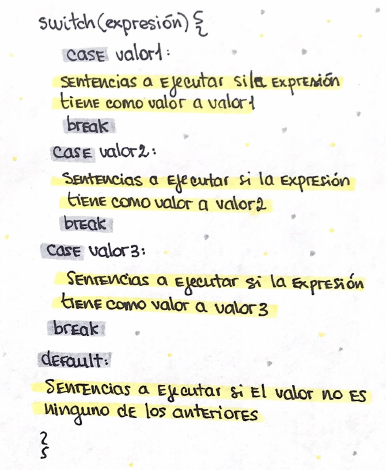 switch(expresión){
case valor1:
sentencias a ejecutar si la expresión
tiene como valor a valor1
break
case valor2:
sentencias a ejecutar si la expresión
tiene como valor a valor2
break
case valor3:
sentencias a ejecutar si la expresión
tiene como valor a valor3
break
default:
sentencias a ejecutar si el valor no es
ninguno de los anteriores
}